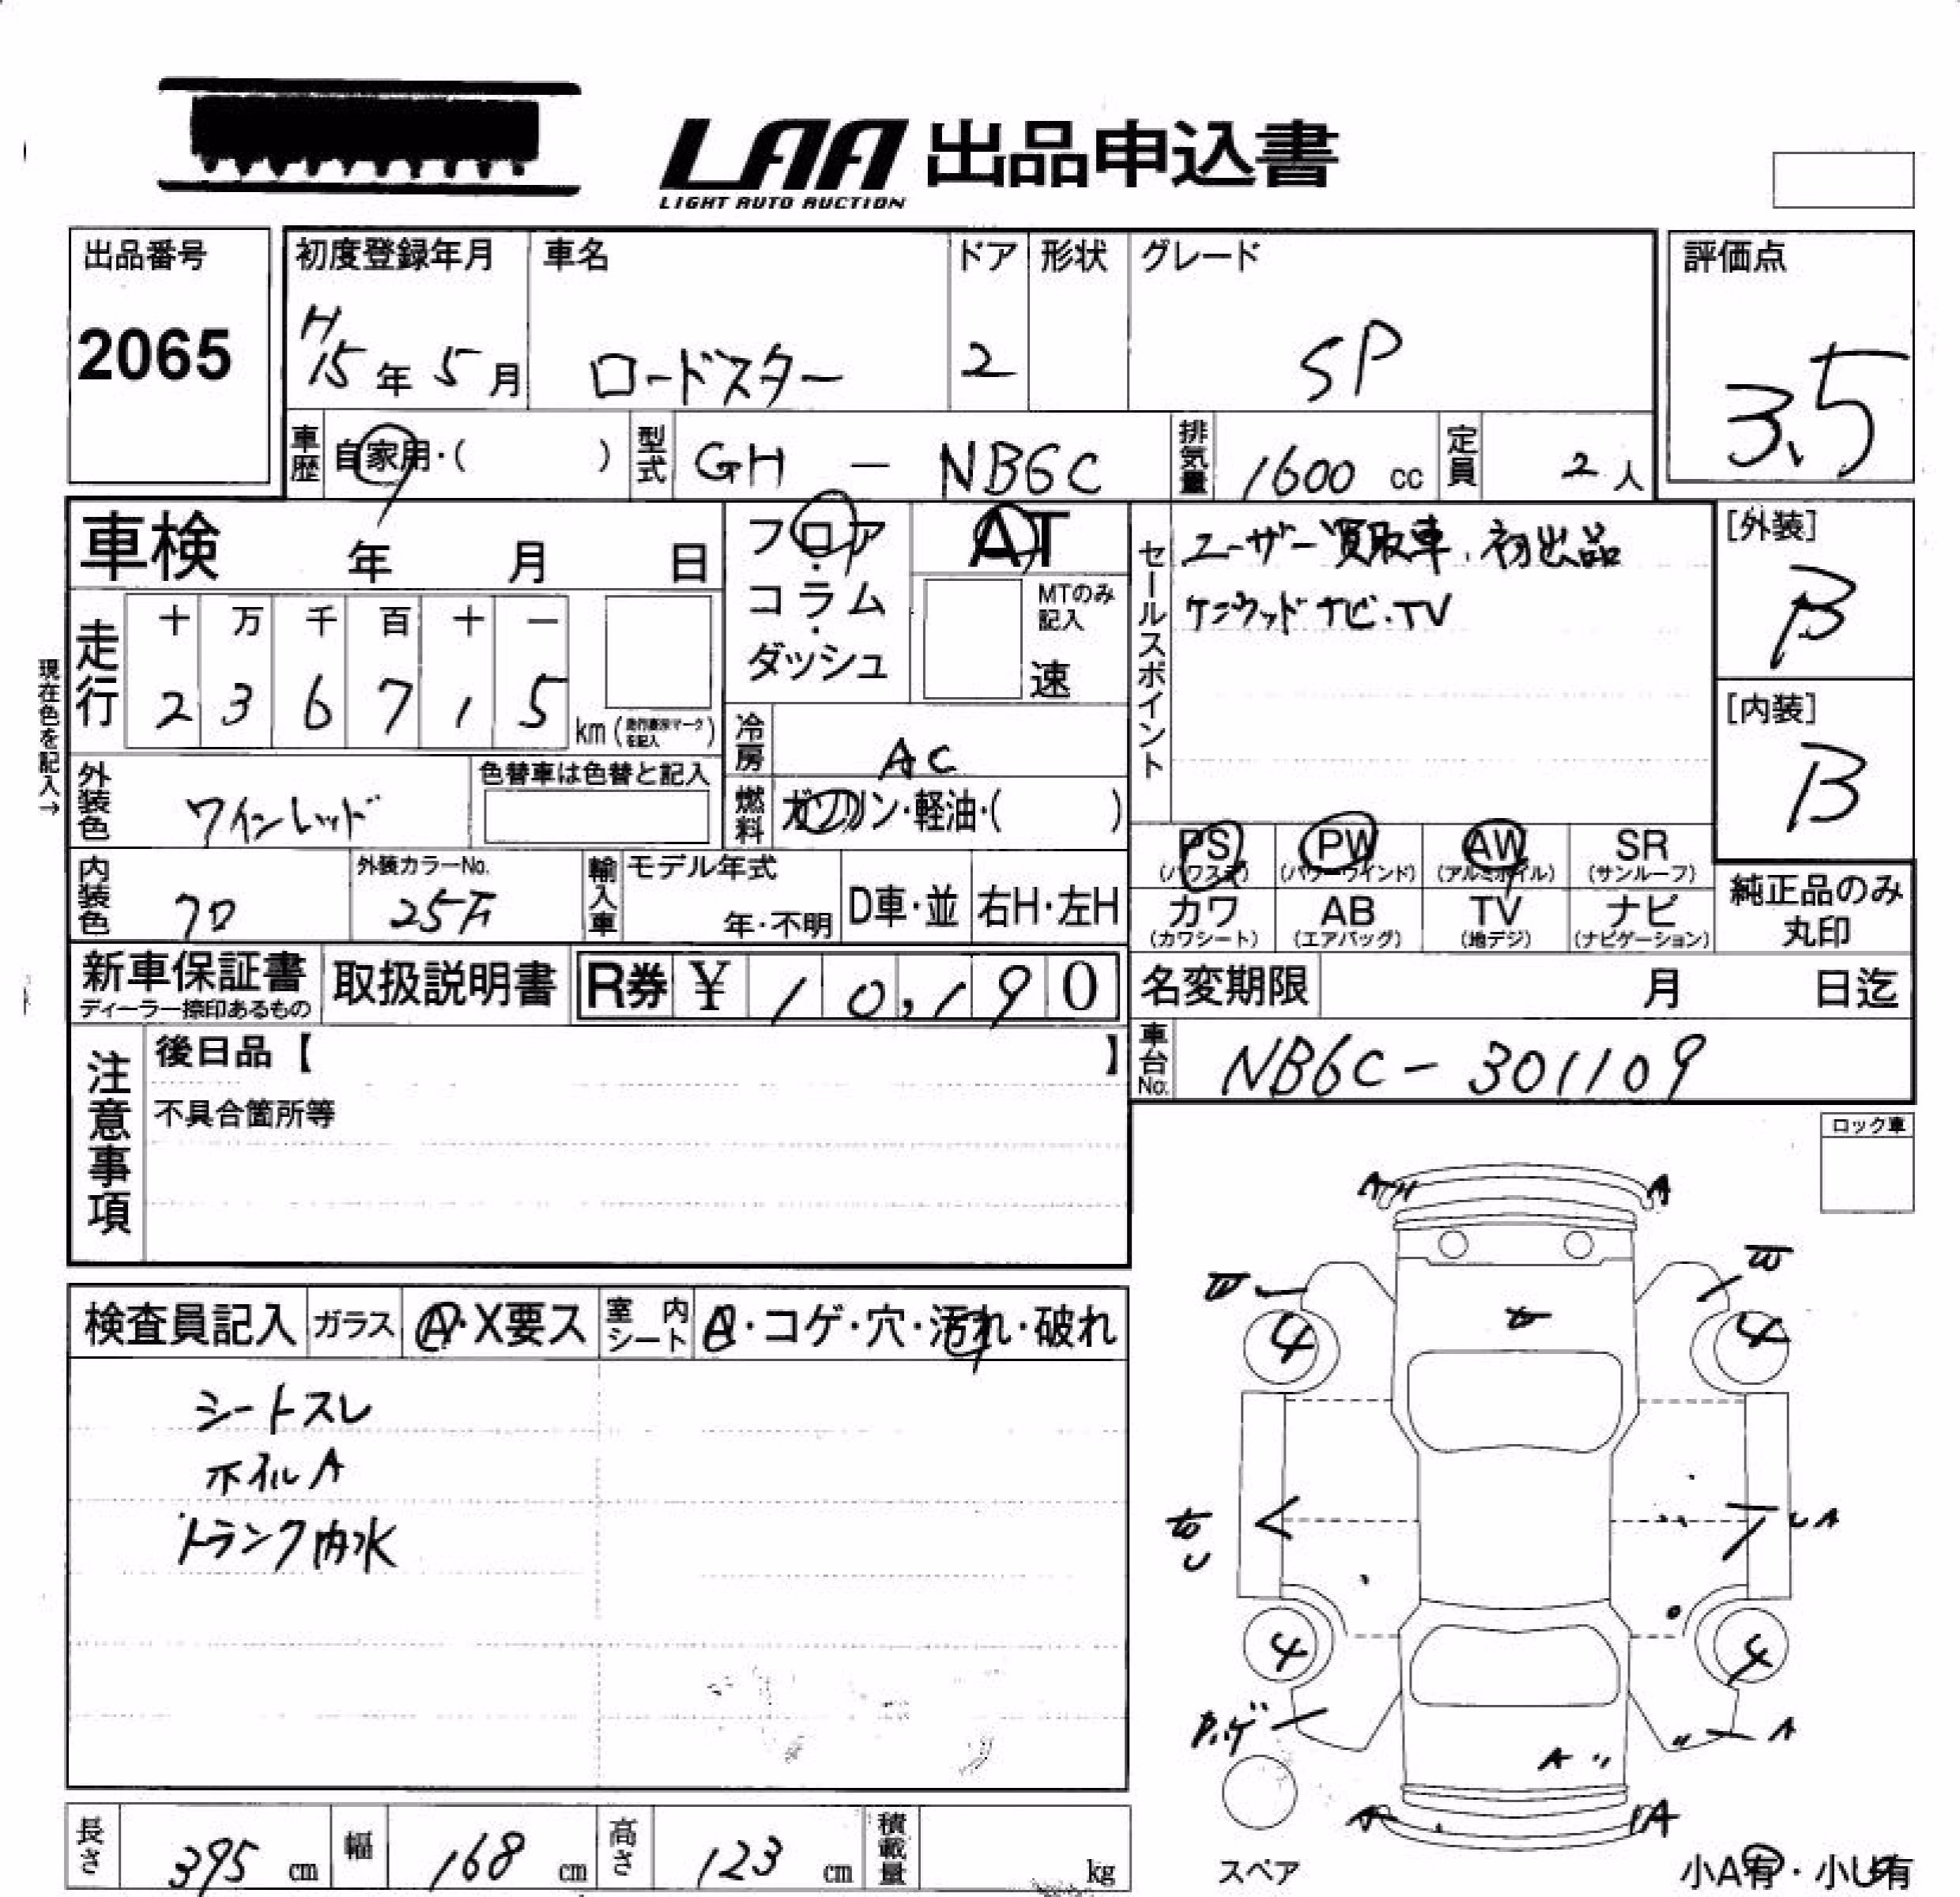 LAA 出品申込書
LIGHT AUTO AUCTION
出品番号
2065
初度登録年月
H15年5月
車名
ロードスター
ドア
2
形状
グレード
SP
評価点
3.5
車歴
自家用・( )
型式
GH - NB6C
排気量
1600 cc
定員
2人
車検 年 月 日
フロア・コラム・ダッシュ
AT
MTのみ記入
速
セールスポイント
ユーザー買取車、初出品
ケンウッドナビ・TV
[外装]
B
[内装]
B
現在色を記入→
走行
十 万 千 百 十 一
2 3 6 7 1 5
km(走行表示マークを記入)
冷房
AC
外装色
ワインレッド
色替車は色替と記入
燃料
ガソリン・軽油・( )
PS (パワステ)
PW (パワーウインド)
AW (アルミホイル)
SR (サンルーフ)
内装色
クロ
外装カラーNo.
輸入車
モデル年式
年・不明
D車・並
右H・左H
カワ (カワシート)
AB (エアバッグ)
TV (地デジ)
ナビ (ナビゲーション)
純正品のみ丸印
新車保証書
ディーラー捺印あるもの
取扱説明書
R券 ¥ 10,190
名変期限 月 日迄
車台No.
NB6C-301109
注意事項
後日品【 】
不具合箇所等
ロック車
検査員記入
ガラス
A・X要ス
室内シート
A・コゲ・穴・汚れ・破れ
シートスレ
ホイルA
トランク内水
A〃
A
4
4
A
4
4
A〃
A
A
A
スペア
小A有・小U有
長さ
395 cm
幅
168 cm
高さ
123 cm
積載量
kg